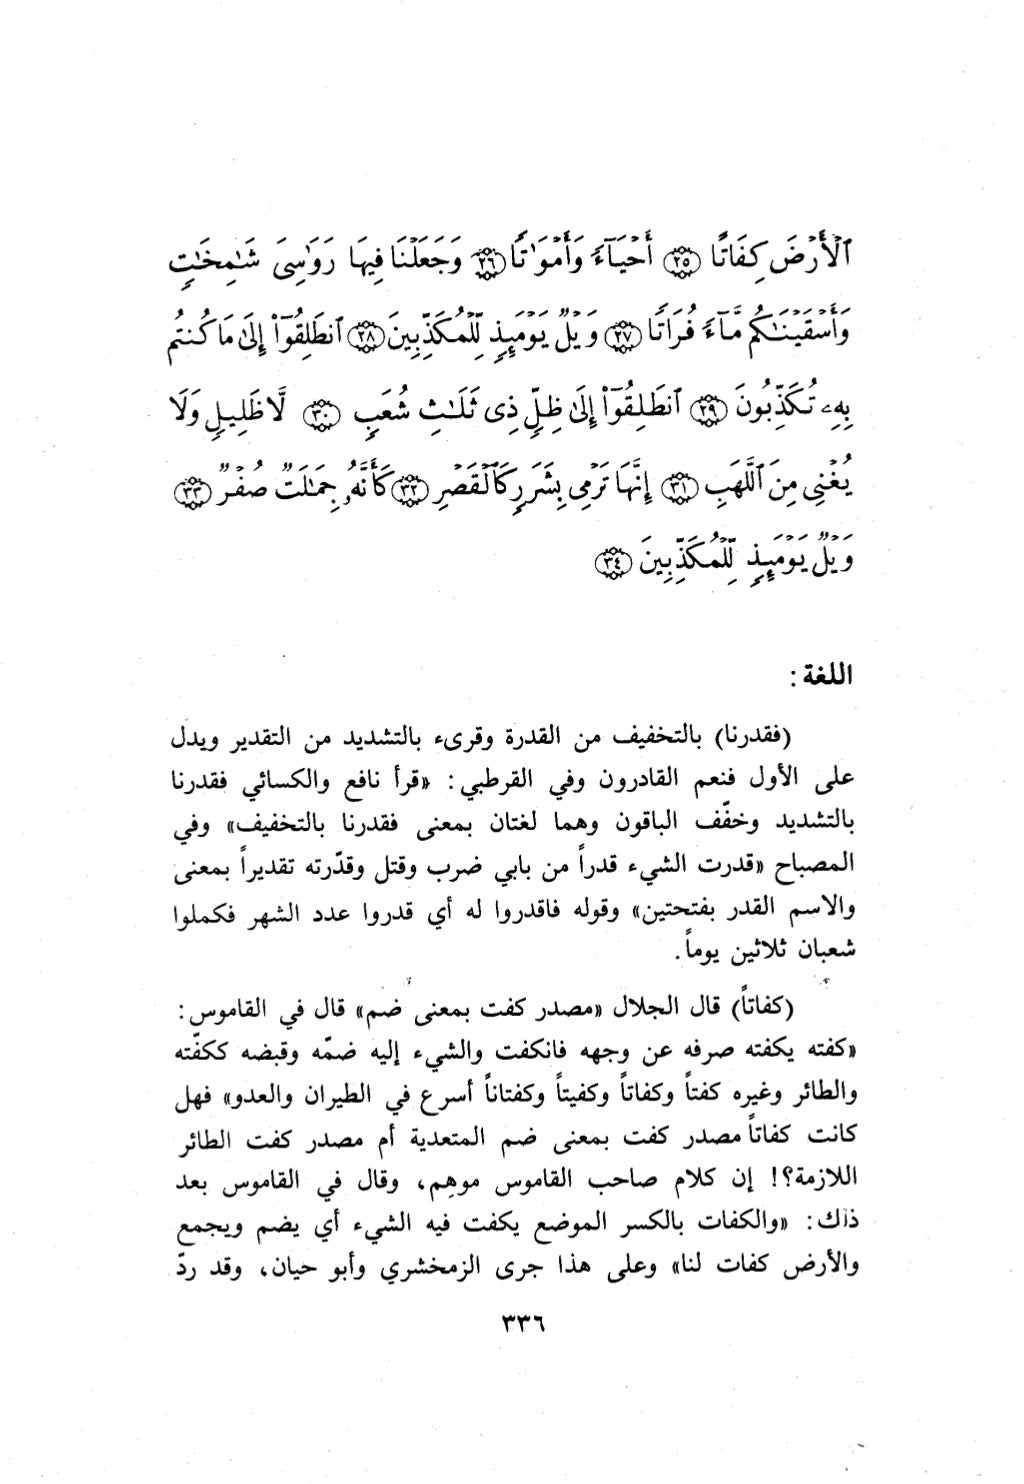 ٱلْأَرْضَ كِفَاتًا ٢٥ أَحْيَآءً وَأَمْوَٰتًا ٢٦ وَجَعَلْنَا فِيهَا رَوَٰسِىَ شَٰمِخَٰتٍ
وَأَسْقَيْنَٰكُم مَّآءً فُرَاتًا ٢٧ وَيْلٌ يَوْمَئِذٍ لِّلْمُكَذِّبِينَ ٢٨ ٱنطَلِقُوٓا۟ إِلَىٰ مَا كُنتُم
بِهِۦ تُكَذِّبُونَ ٢٩ ٱنطَلِقُوٓا۟ إِلَىٰ ظِلٍّ ذِى ثَلَٰثِ شُعَبٍ ٣٠ لَّا ظَلِيلٍ وَلَا
يُغْنِى مِنَ ٱللَّهَبِ ٣١ إِنَّهَا تَرْمِى بِشَرَرٍ كَٱلْقَصْرِ ٣٢ كَأَنَّهُۥ جِمَٰلَتٌ صُفْرٌ ٣٣
وَيْلٌ يَوْمَئِذٍ لِّلْمُكَذِّبِينَ ٣٤
اللغة :
(فقدرنا) بالتخفيف من القدرة وقرىء بالتشديد من التقدير ويدل
على الأول فنعم القادرون وفي القرطبي : «قرأ نافع والكسائي فقدرنا
بالتشديد وخفّف الباقون وهما لغتان بمعنى فقدرنا بالتخفيف» وفي
المصباح «قدرت الشيء قدراً من بابي ضرب وقتل وقدّرته تقديراً بمعنى
والاسم القدر بفتحتين» وقوله فاقدروا له أي قدروا عدد الشهر فكملوا
شعبان ثلاثين يوماً.
(كفاتاً) قال الجلال «مصدر كفت بمعنى ضم» قال في القاموس :
«كفته يكفته صرفه عن وجهه فانكفت والشيء إليه ضمّه وقبضه ككفّته
والطائر وغيره كفتاً وكفاتاً وكفيتاً وكفتاناً أسرع في الطيران والعدو» فهل
كانت كفاتاً مصدر كفت بمعنى ضم المتعدية أم مصدر كفت الطائر
اللازمة؟! إن كلام صاحب القاموس موهِم، وقال في القاموس بعد
ذلك : «والكفات بالكسر الموضع يكفت فيه الشيء أي يضم ويجمع
والأرض كفات لنا» وعلى هذا جرى الزمخشري وأبو حيان، وقد ردّ
٣٣٦